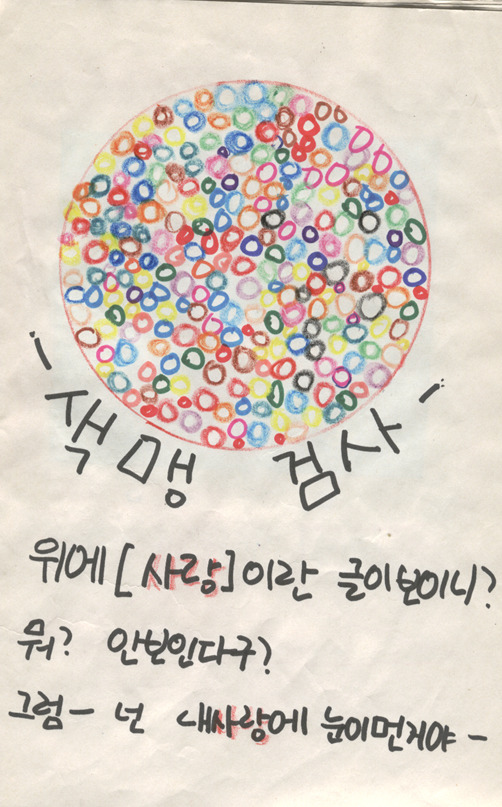 - 색맹 검사 -
위에 [사랑]이란 글이보이니?
뭐? 안보인다구?
그럼- 넌 내사랑에 눈이먼거야-